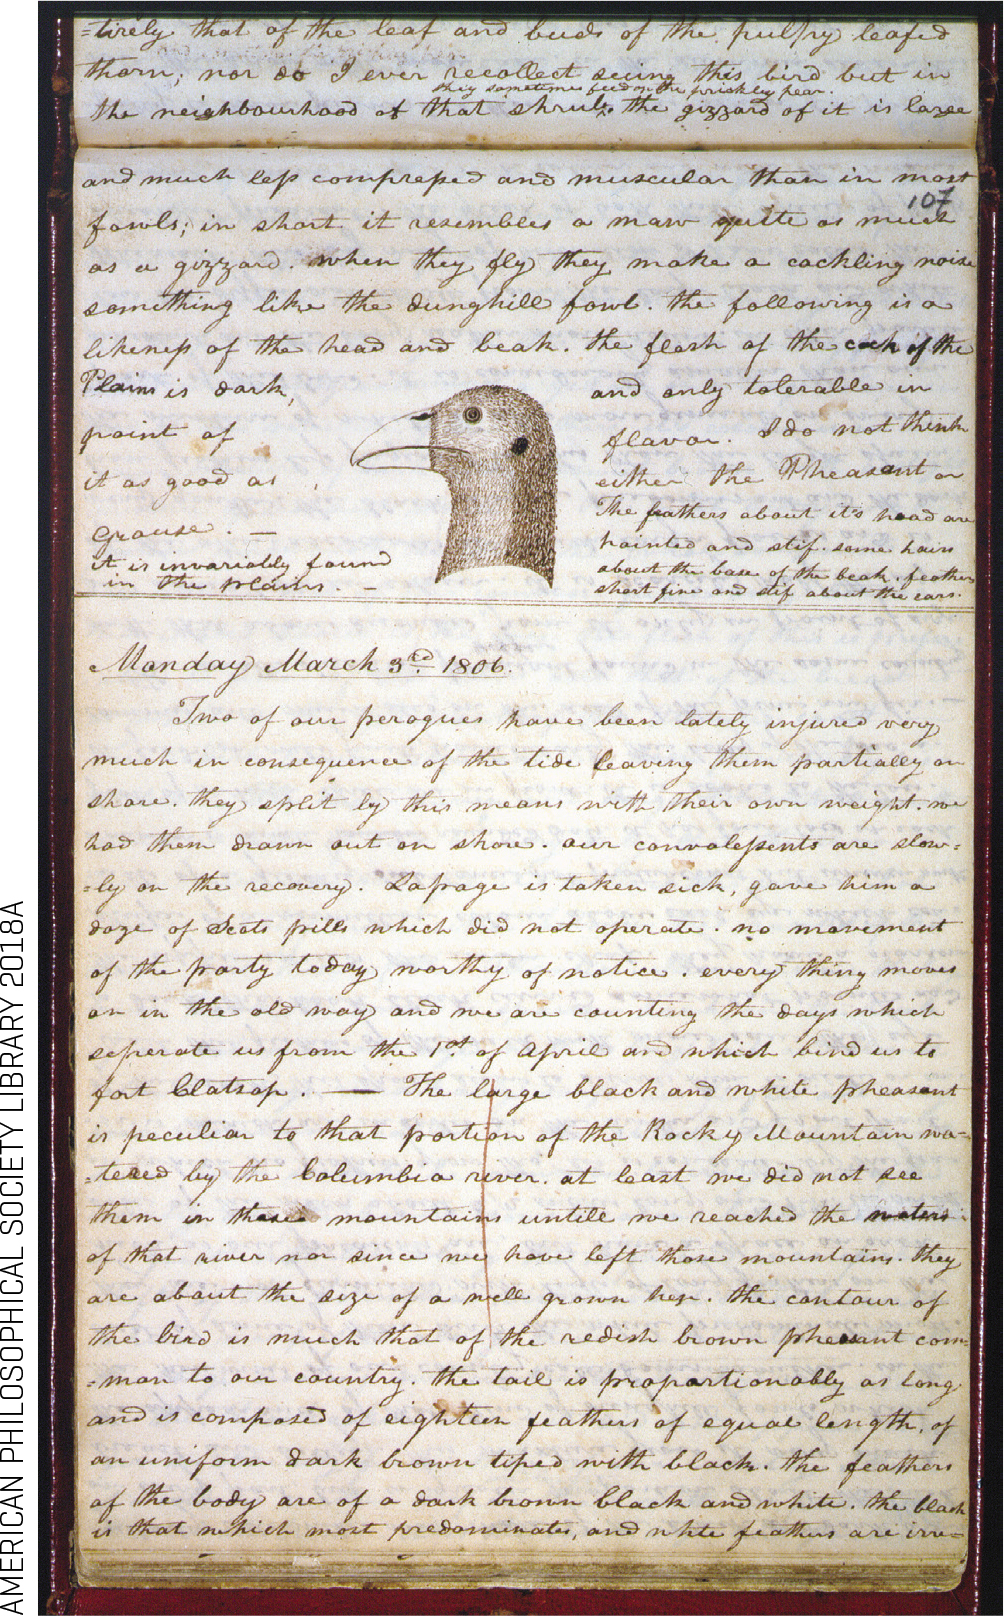 =tirely that of the leaf and buds of the pulpy leafed
thorn; nor do I ever recollect seeing this bird but in
they sometimes feed on the prickley pear.
the neighbourhood of that shrub. the gizzard of it is large
and much less compressed and muscular than in most
107
fowls; in short it resembles a maw quite as much
as a gizzard. when they fly they make a cackling noise
something like the dunghill fowl. the following is a
likeness of the head and beak. the flesh of the cock of the
Plains is dark, and only tolerable in
point of flavor. I do not think
it as good as either the Pheasant or
grouse. — The feathers about it's head are
it is invariably found pointed and stif. some hairs
in the plains. — about the base of the beak. feathers
short fine and stif about the ears.
Monday March 3rd 1806.
Two of our perogues have been lately injured very
much in consequence of the tide leaving them partially on
shore. they split by this means with their own weight. we
had them drawn out on shore. our convalessents are slow=
=ly on the recovery. Lapage is taken sick, gave him a
doze of Scots pills which did not operate. no movement
of the party today worthy of notice. every thing moves
on in the old way and we are counting the days which
seperate us from the 1st of April and which bind us to
fort Clatsop. — The large black and white pheasant
is peculiar to that portion of the Rocky Mountain wa=
=tered by the Columbia river. at least we did not see
them in these mountains untill we reached the waters
of that river nor since we have left those mountains. they
are about the size of a well grown hen. the contour of
the bird is much that of the redish brown pheasant com=
=mon to our country. the tail is proportionably as long
and is composed of eighteen feathers of equal length, of
an uniform dark brown tiped with black. the feathers
of the body are of a dark brown black and white. the black
is that which most predominates, and white feathers are irre=
AMERICAN PHILOSOPHICAL SOCIETY LIBRARY 2018A